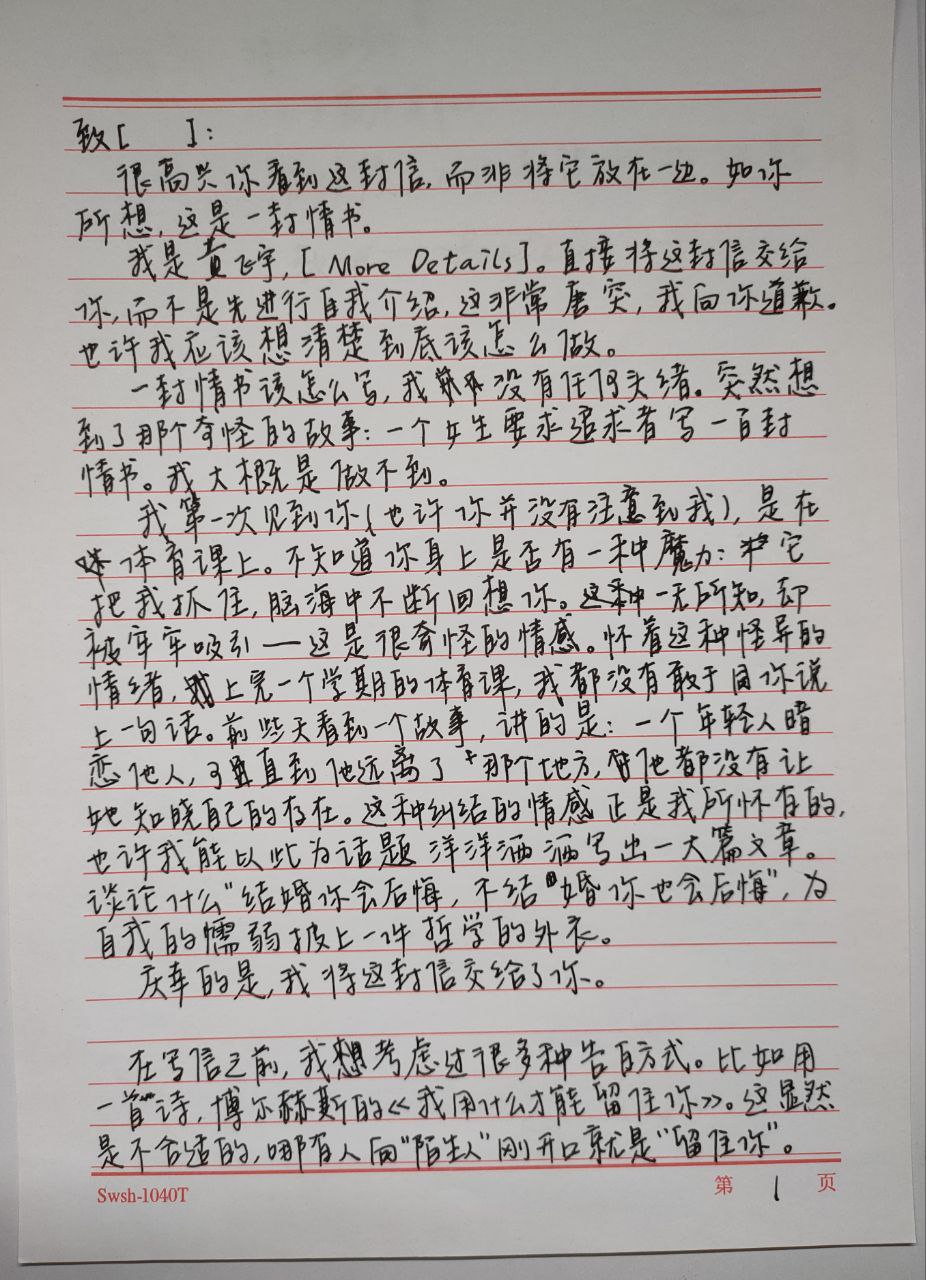 致[  ]:
很高兴你看到这封信,而非将它放在一边。如你
所想,这是一封情书。
我是黄飞宇,[More Details]。直接将这封信交给
你,而不是先进行自我介绍,这非常唐突,我向你道歉。
也许我应该想清楚到底该怎么做。
一封情书该怎么写,我没有任何头绪。突然想
到了那个奇怪的故事:一个女生要求追求者写一百封
情书。我大概是做不到。
我第一次见到你(也许你并没有注意到我),是在
体育课上。不知道你身上是否有一种魔力:将它
把我抓住,脑海中不断回想你。这种一无所知,却
被牢牢吸引——这是很奇怪的情感。怀着这种怪异的
情绪,上完一个学期的体育课,我都没有敢于同你说
上一句话。前些天看到一个故事,讲的是:一个年轻人暗
恋他人,直到他远离了那个地方,他都没有让
她知晓自己的存在。这种纠结的情感正是我所怀有的,
也许我能以此为话题洋洋洒洒写出一大篇文章。
谈论什么“结婚你会后悔,不结婚你也会后悔”,为
自我的懦弱披上一件哲学的外衣。
庆幸的是,我将这封信交给了你。
在写信之前,我想考虑过很多种告白方式。比如用
一首诗,博尔赫斯的《我用什么才能留住你》。这显然
是不合适的,哪有人向“陌生人”刚开口就是“留住你”。
Swsh-1040T
第 1 页